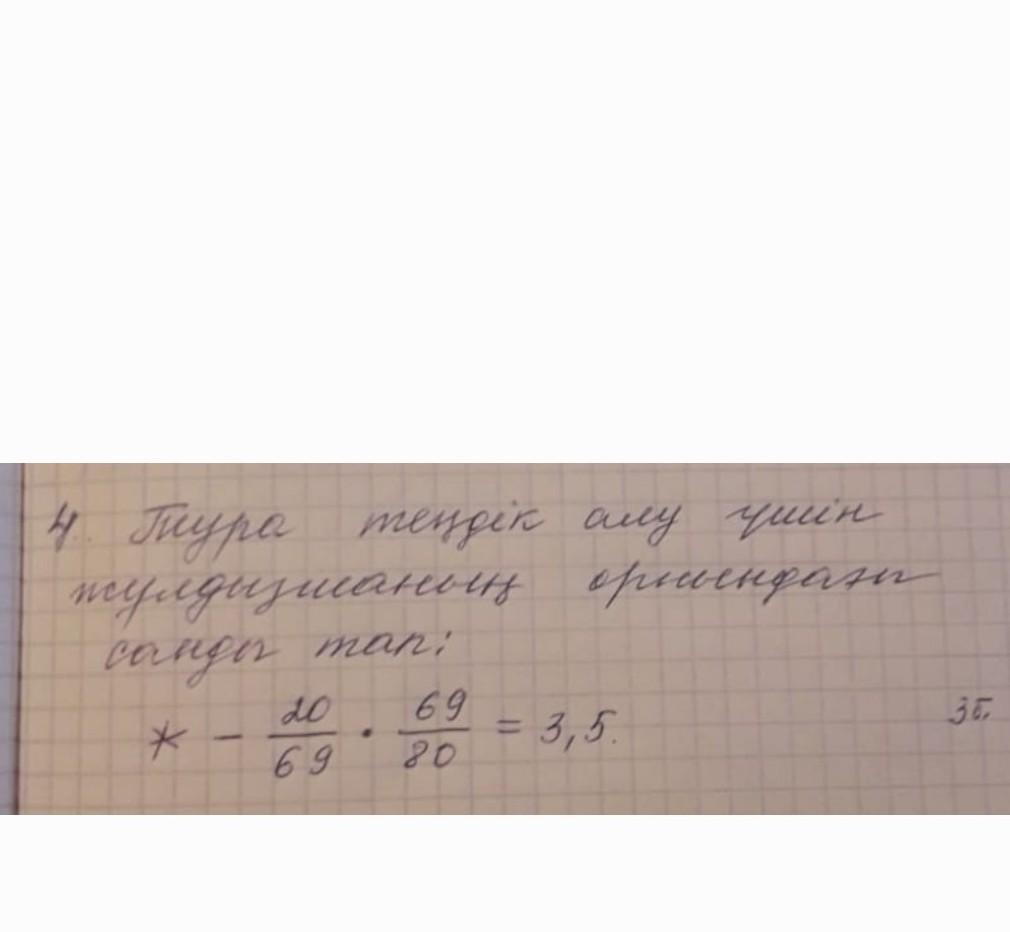 4. Тура теңдік алу үшін
жұлдызшаның орнындағы
санды тап:
* - 20/69 · 69/80 = 3,5.
3б.